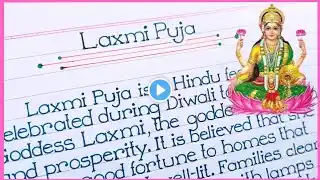 Laxmi Puja
Laxmi Puja is Hindu
celebrated during Diwali
Goddess Laxmi, the
and prosperity. It is believed that
good fortune to homes that
well-lit. Families clean
with lamps